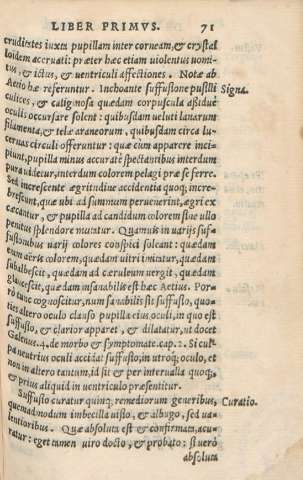 LIBER PRIMVS. 71
crudi etes iuxta pupillam inter corneam, & crystal
loidem accruati: præter hæc etiam uiolentus uomi-
tus, & ictus, & uentriculi affectiones. Notæ ab
Aetio hæ referuntur. Inchoante suffusione pusilli Signa.
culices, & caliginosa quædam corpuscula aßiduè
oculis occursare solent: quibusdam ueluti lanarum
filamenta, & telæ araneorum, quibusdam circa lu-
cernas circuli offeruntur: quæ cùm apparere inci-
piunt, pupilla minus accuratè spectantibus interdum
pura uidetur, interdum colorem pelagi præ se ferre.
Sed increscente ægritudine accidentia quoq; incre-
brescunt, quæ ubi ad summum peruenerint, ægri ex
cæcantur, & pupilla ad candidum colorem sine ullo
penitus splendore mutatur. Quamuis in uarijs suf-
fusionibus uarij colores conspici soleant: quædam
enim aëris colorem, quædam uitri imitatur, quædam
subalbescit, quædam ad cæruleum uergit, quædam
glaucescit, quædam insanabilis est hæc Aetius. Por-
rò tunc cognoscitur, num sanabilis sit suffusio, quo-
ties altero oculo clauso pupilla eius oculi, in quo est
suffusio, & clarior apparet, & dilatatur, ut docet
Galenus. 4. de morbo & symptomate. cap. 2. Si cul-
pa uentrius oculi accidat suffusio, in utroq; oculo, et
non in altero tantum, id fit & per interualla quoq;,
& prius aliquid in uentriculo præsentitur.
Suffusio curatur quinq; remediorum generibus, Curatio.
quemadmodum imbecilla uisio, & albugo, sed ua-
lentioribus. Quæ absoluta est & confirmata, acu-
ratur: eget tamen uiro docto, & probato: si uerò
absoluta